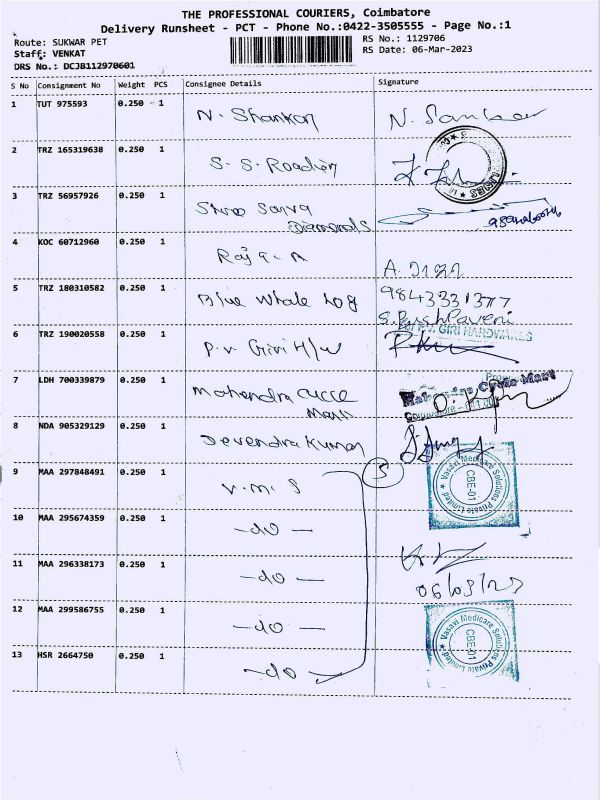 THE PROFESSIONAL COURIERS, Coimbatore
Delivery Runsheet - PCT - Phone No.:0422-3505555 - Page No.:1
Route: SUKWAR PET
RS No.: 1129706
Staff: VENKAT
RS Date: 06-Mar-2023
DRS No.: DCJB112970601
S No Consignment No Weight PCS Consignee Details Signature
1 TUT 975593 0.250 1 N. Shankar
2 TRZ 165319638 0.250 1 S. S.
3 TRZ 56957926 0.250 1 Shree Sarva
Diamonds
4 KOC 60712960 0.250 1 Raja. A
5 TRZ 180310582 0.250 1 Blue Whale Log 9843331377
S. PushPaveni
6 TRZ 190020558 0.250 1 P. V. Giri H/W
P.V. GIRI HARDWARES
7 LDH 700339879 0.250 1 Mahendra Cycle
Mart
Mahendra Cycle Mart
8 NDA 905329129 0.250 1 Devendra Kumar
9 MAA 297848491 0.250 1 V. M. S 5
Vasavi Medicare Solutions Private Limited
CBE-01
10 MAA 295674359 0.250 1 -do-
11 MAA 296338173 0.250 1 -do-
06/03/23
12 MAA 299586755 0.250 1 -do-
Vasavi Medicare Solutions Private Limited
CBE-01
13 HSR 2664750 0.250 1 -do-